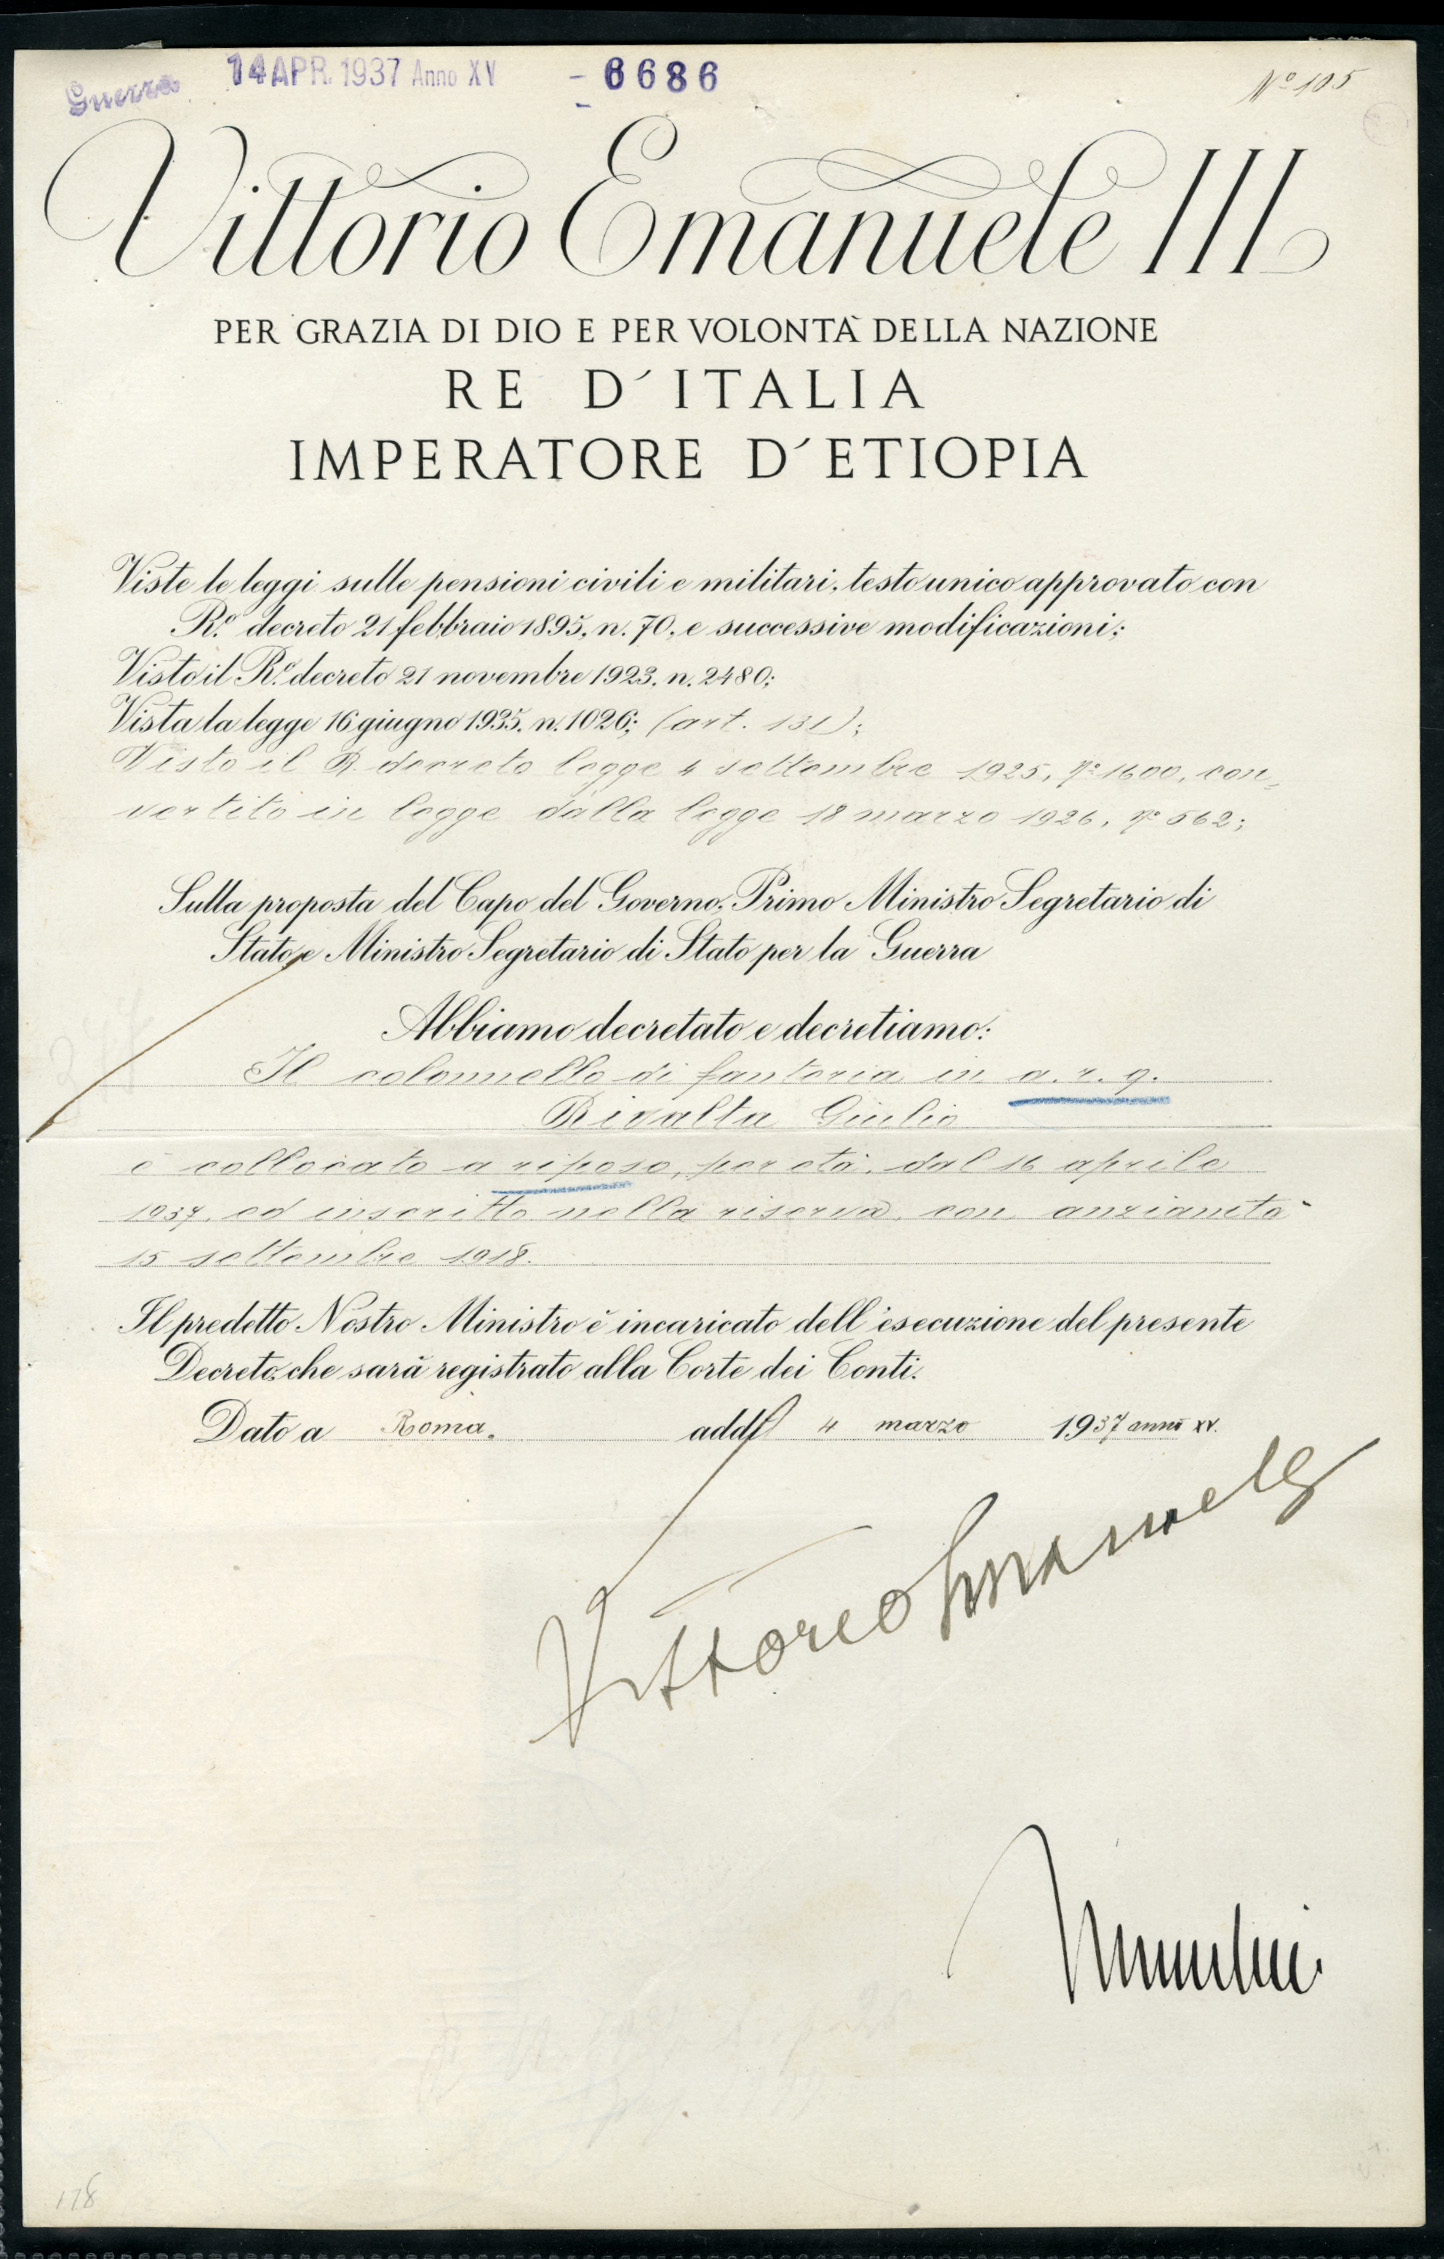 Guerra 14 APR. 1937 Anno XV - 6686 Nº 105
Vittorio Emanuele III
PER GRAZIA DI DIO E PER VOLONTÀ DELLA NAZIONE
RE D'ITALIA
IMPERATORE D'ETIOPIA
Viste le leggi sulle pensioni civili e militari, testo unico approvato con
R.º decreto 21 febbraio 1895, n. 70, e successive modificazioni;
Visto il R.º decreto 21 novembre 1923, n. 2480;
Vista la legge 16 giugno 1935, n. 1026; (art. 131);
Visto il R. decreto legge 4 settembre 1925, nº 1600, con-
vertito in legge dalla legge 18 marzo 1926, nº 562;
Sulla proposta del Capo del Governo, Primo Ministro Segretario di
Stato e Ministro Segretario di Stato per la Guerra
Abbiamo decretato e decretiamo:
Il colonnello di fanteria in a.r.q.
Rivalta Giulio
è collocato a riposo, per età, dal 16 aprile
1937, ed inscritto nella riserva, con anzianità
15 settembre 1918.
Il predetto Nostro Ministro è incaricato dell'esecuzione del presente
Decreto che sarà registrato alla Corte dei Conti.
Dato a Roma, addì 4 marzo 1937 anno XV.
Vittorio Emanuele
Mussolini
178